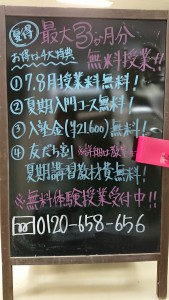 夏得 最大3ヶ月分
お得な4大特典 無料授業!!
① 7.8月授業料無料!
② 夏期入門コース無料!
③ 入塾金(¥21,600)無料!
④ 友だち割
夏期講習教材費無料!
※無料体験授業受付中!!
0120-658-656